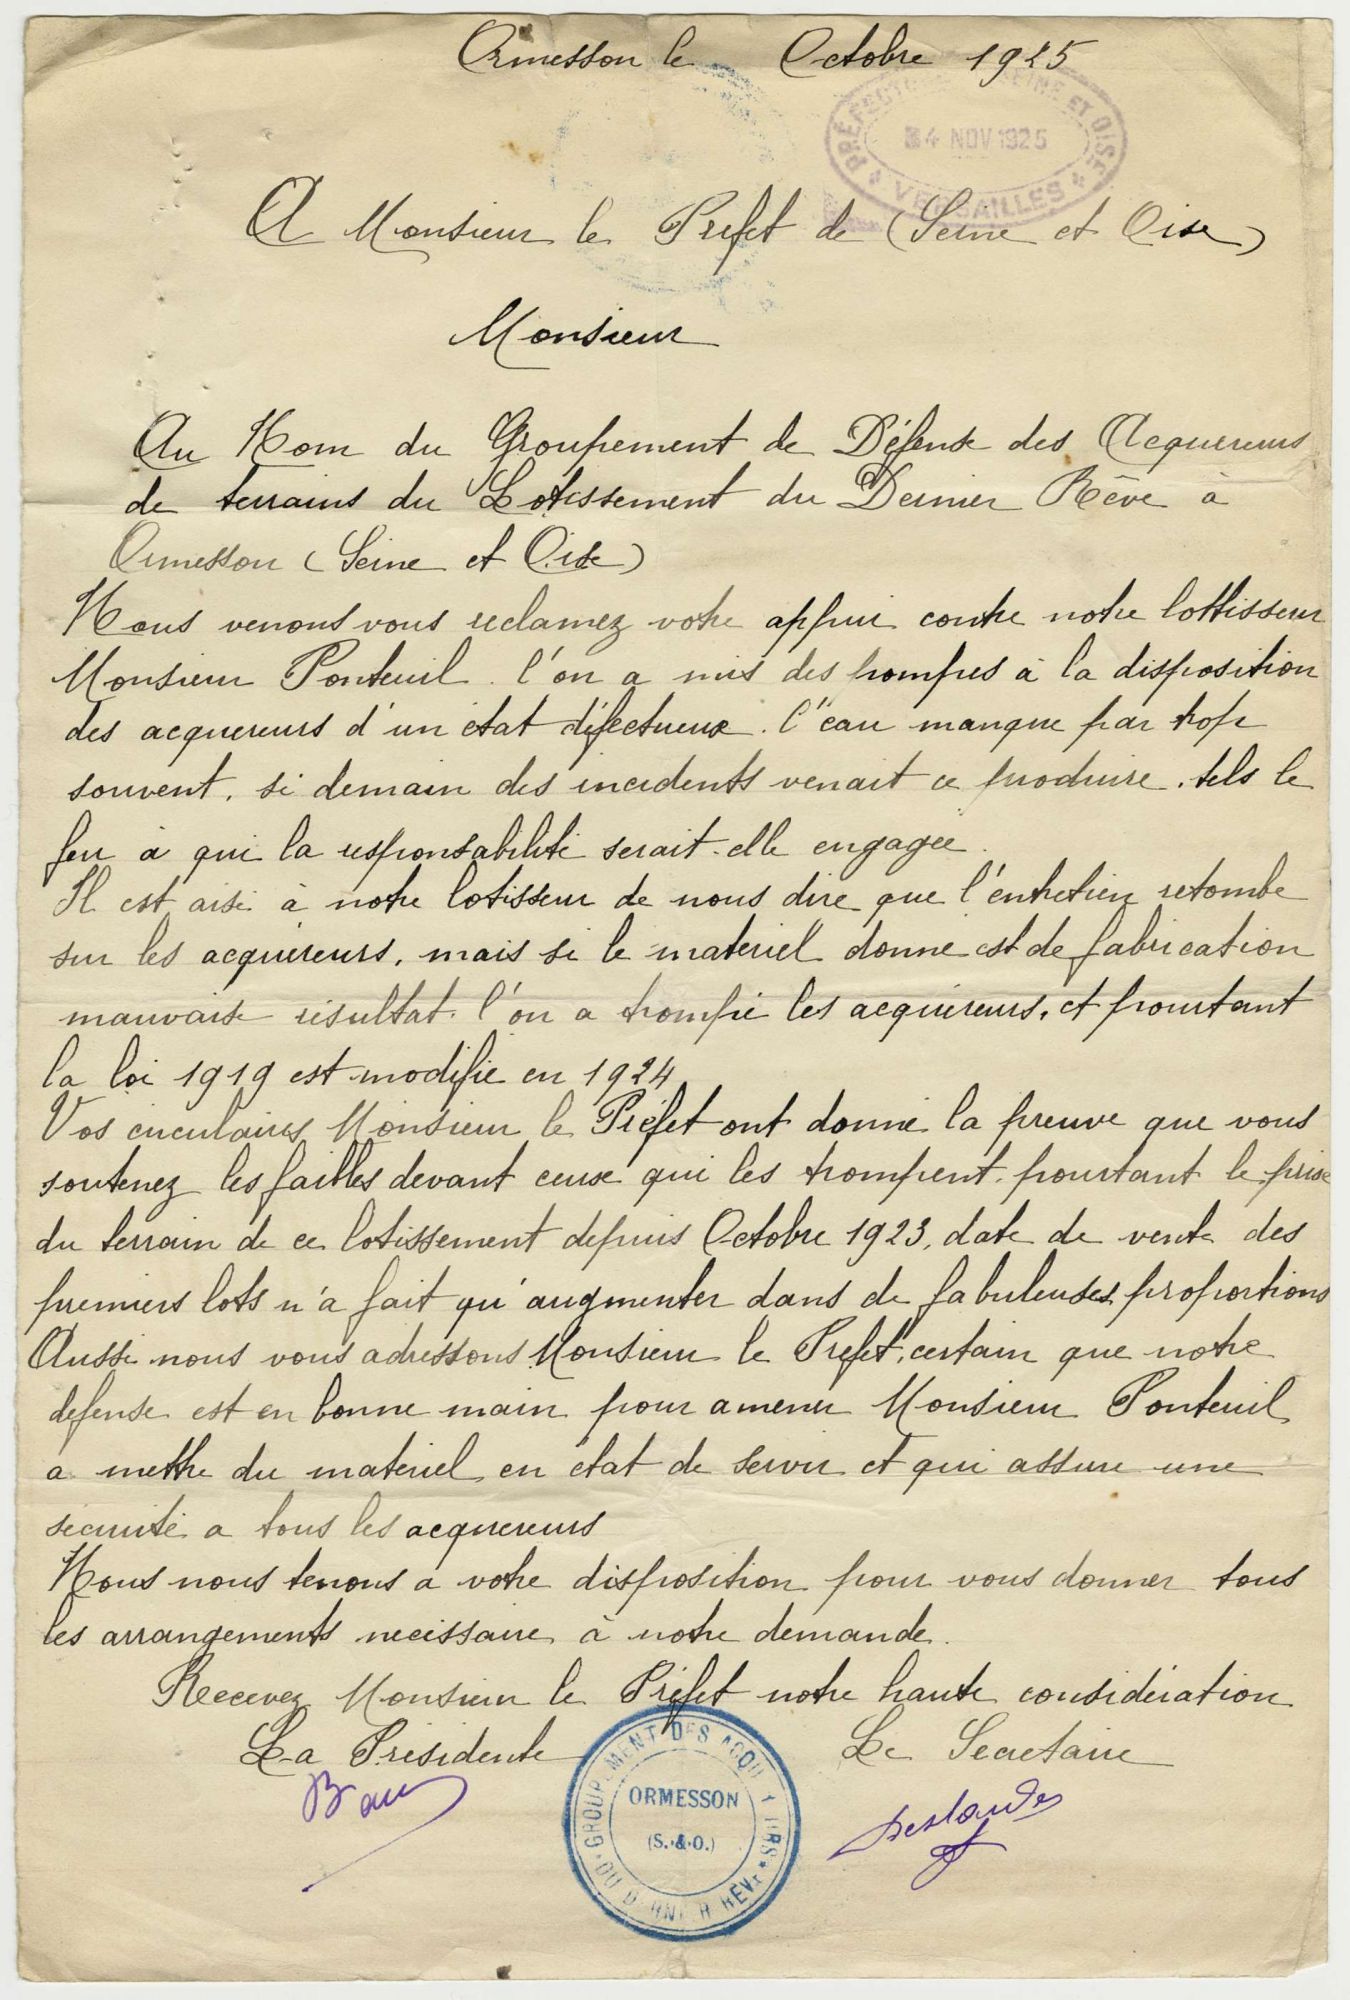 Ormesson le Octobre 1925
PRÉFECTURE DE SEINE ET OISE
4 NOV 1925
VERSAILLES
A Monsieur le Prefet de (Seine et Oise)
Monsieur
Au Nom du Groupement de Défense des Acquereurs
de terrains du Lotissement du Dernier Rêve à
Ormesson (Seine et Oise)
Nous venons vous reclamez votre appui contre notre lottisseur
Monsieur Ponteuil. l'on a mis des pompes à la disposition
des acquereurs d'un état défectueux. l'eau manque par trop
souvent. si demain des incidents venait ce produire. tels le
feu à qui la responsabilité serait-elle engagée.
Il est aisé à notre lotisseur de nous dire que l'entretien retombe
sur les acquéreurs. mais si le matériel donné est de fabrication
mauvaise résultat. l'on a trompé les acquéreurs. et pourtant
la loi 1919 est modifié en 1924
Vos circulaires Monsieur le Préfet ont donné la preuve que vous
soutenez les faibles devant ceux qui les trompent. pourtant le prix
du terrain de ce lotissement depuis Octobre 1923, date de vente des
premiers lots n'a fait qu'augmenter dans de fabuleuses proportions
Aussi nous vous adressons Monsieur le Prefet, certain que notre
defense est en bonne main pour amener Monsieur Ponteuil
a mettre du matériel en état de servir et qui assure une
sécurité a tous les acquereurs
Nous nous tenons a votre disposition pour vous donner tous
les arrangements necessaire à notre demande.
Recevez Monsieur le Préfet notre haute considération
La Présidente Le Secretaire
GROUPEMENT DES ACQUÉREURS
ORMESSON
(S.&.O.)
DU DERNIER RÊVE